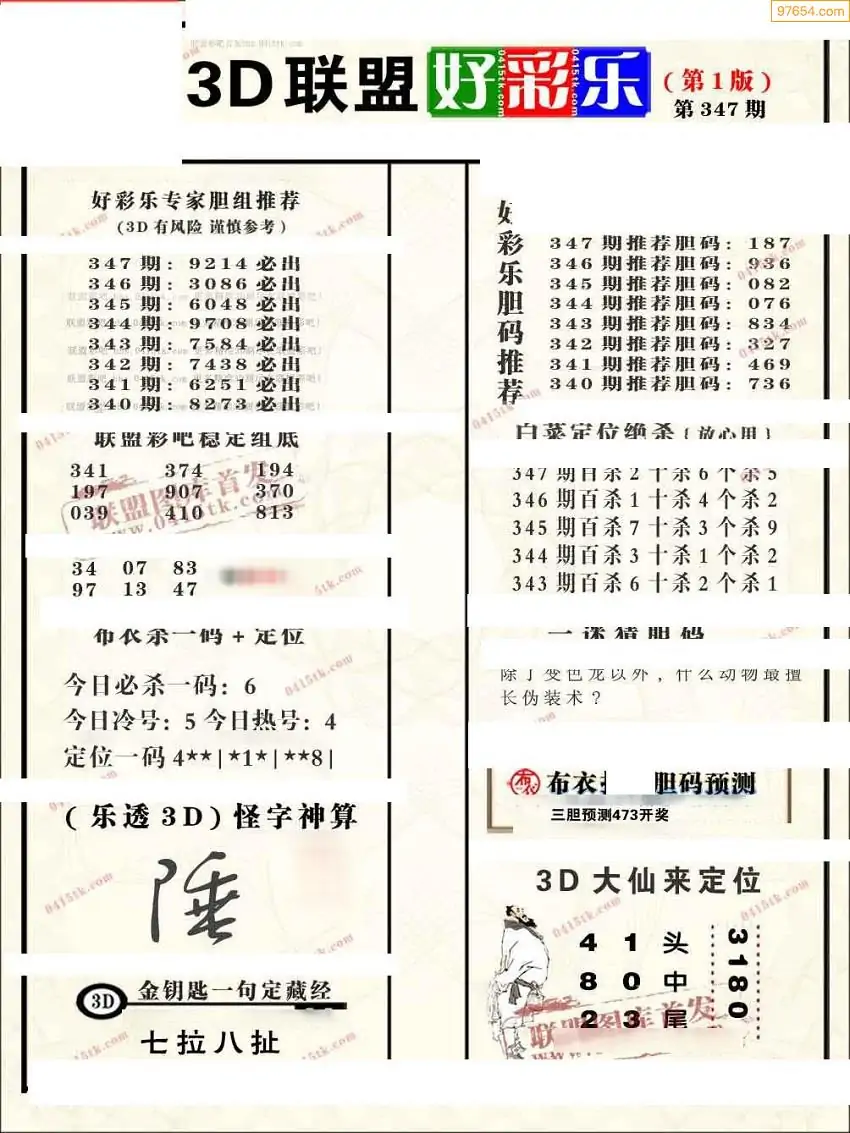 97654.com
3D联盟好彩乐
(第1版)
第347期
好彩乐专家胆组推荐
(3D有风险 谨慎参考)
347期:9214必出
346期:3086必出
345期:6048必出
344期:9708必出
343期:7584必出
342期:7438必出
341期:6251必出
340期:8273必出
联盟彩吧稳定组底
341 374 194
197 907 370
039 410 813
34 07 83
97 13 47
布衣杀一码+定位
今日必杀一码:6
今日冷号:5今日热号:4
定位一码4**|*1*|**8|
(乐透3D)怪字神算
3D 金钥匙一句定藏经
七拉八扯
好彩乐胆码推荐
347期推荐胆码:187
346期推荐胆码:936
345期推荐胆码:082
344期推荐胆码:076
343期推荐胆码:834
342期推荐胆码:327
341期推荐胆码:469
340期推荐胆码:736
白菜定位绝杀(放心用)
347期百杀2十杀6个杀5
346期百杀1十杀4个杀2
345期百杀7十杀3个杀9
344期百杀3十杀1个杀2
343期百杀6十杀2个杀1
一迷猜胆码
除了变色龙以外,什么动物最擅
长伪装术?
布衣 胆码预测
三胆预测473开奖
3D大仙来定位
41头
80中
23尾
3180
联盟图库首发
www.0415tk.com
0415tk.com